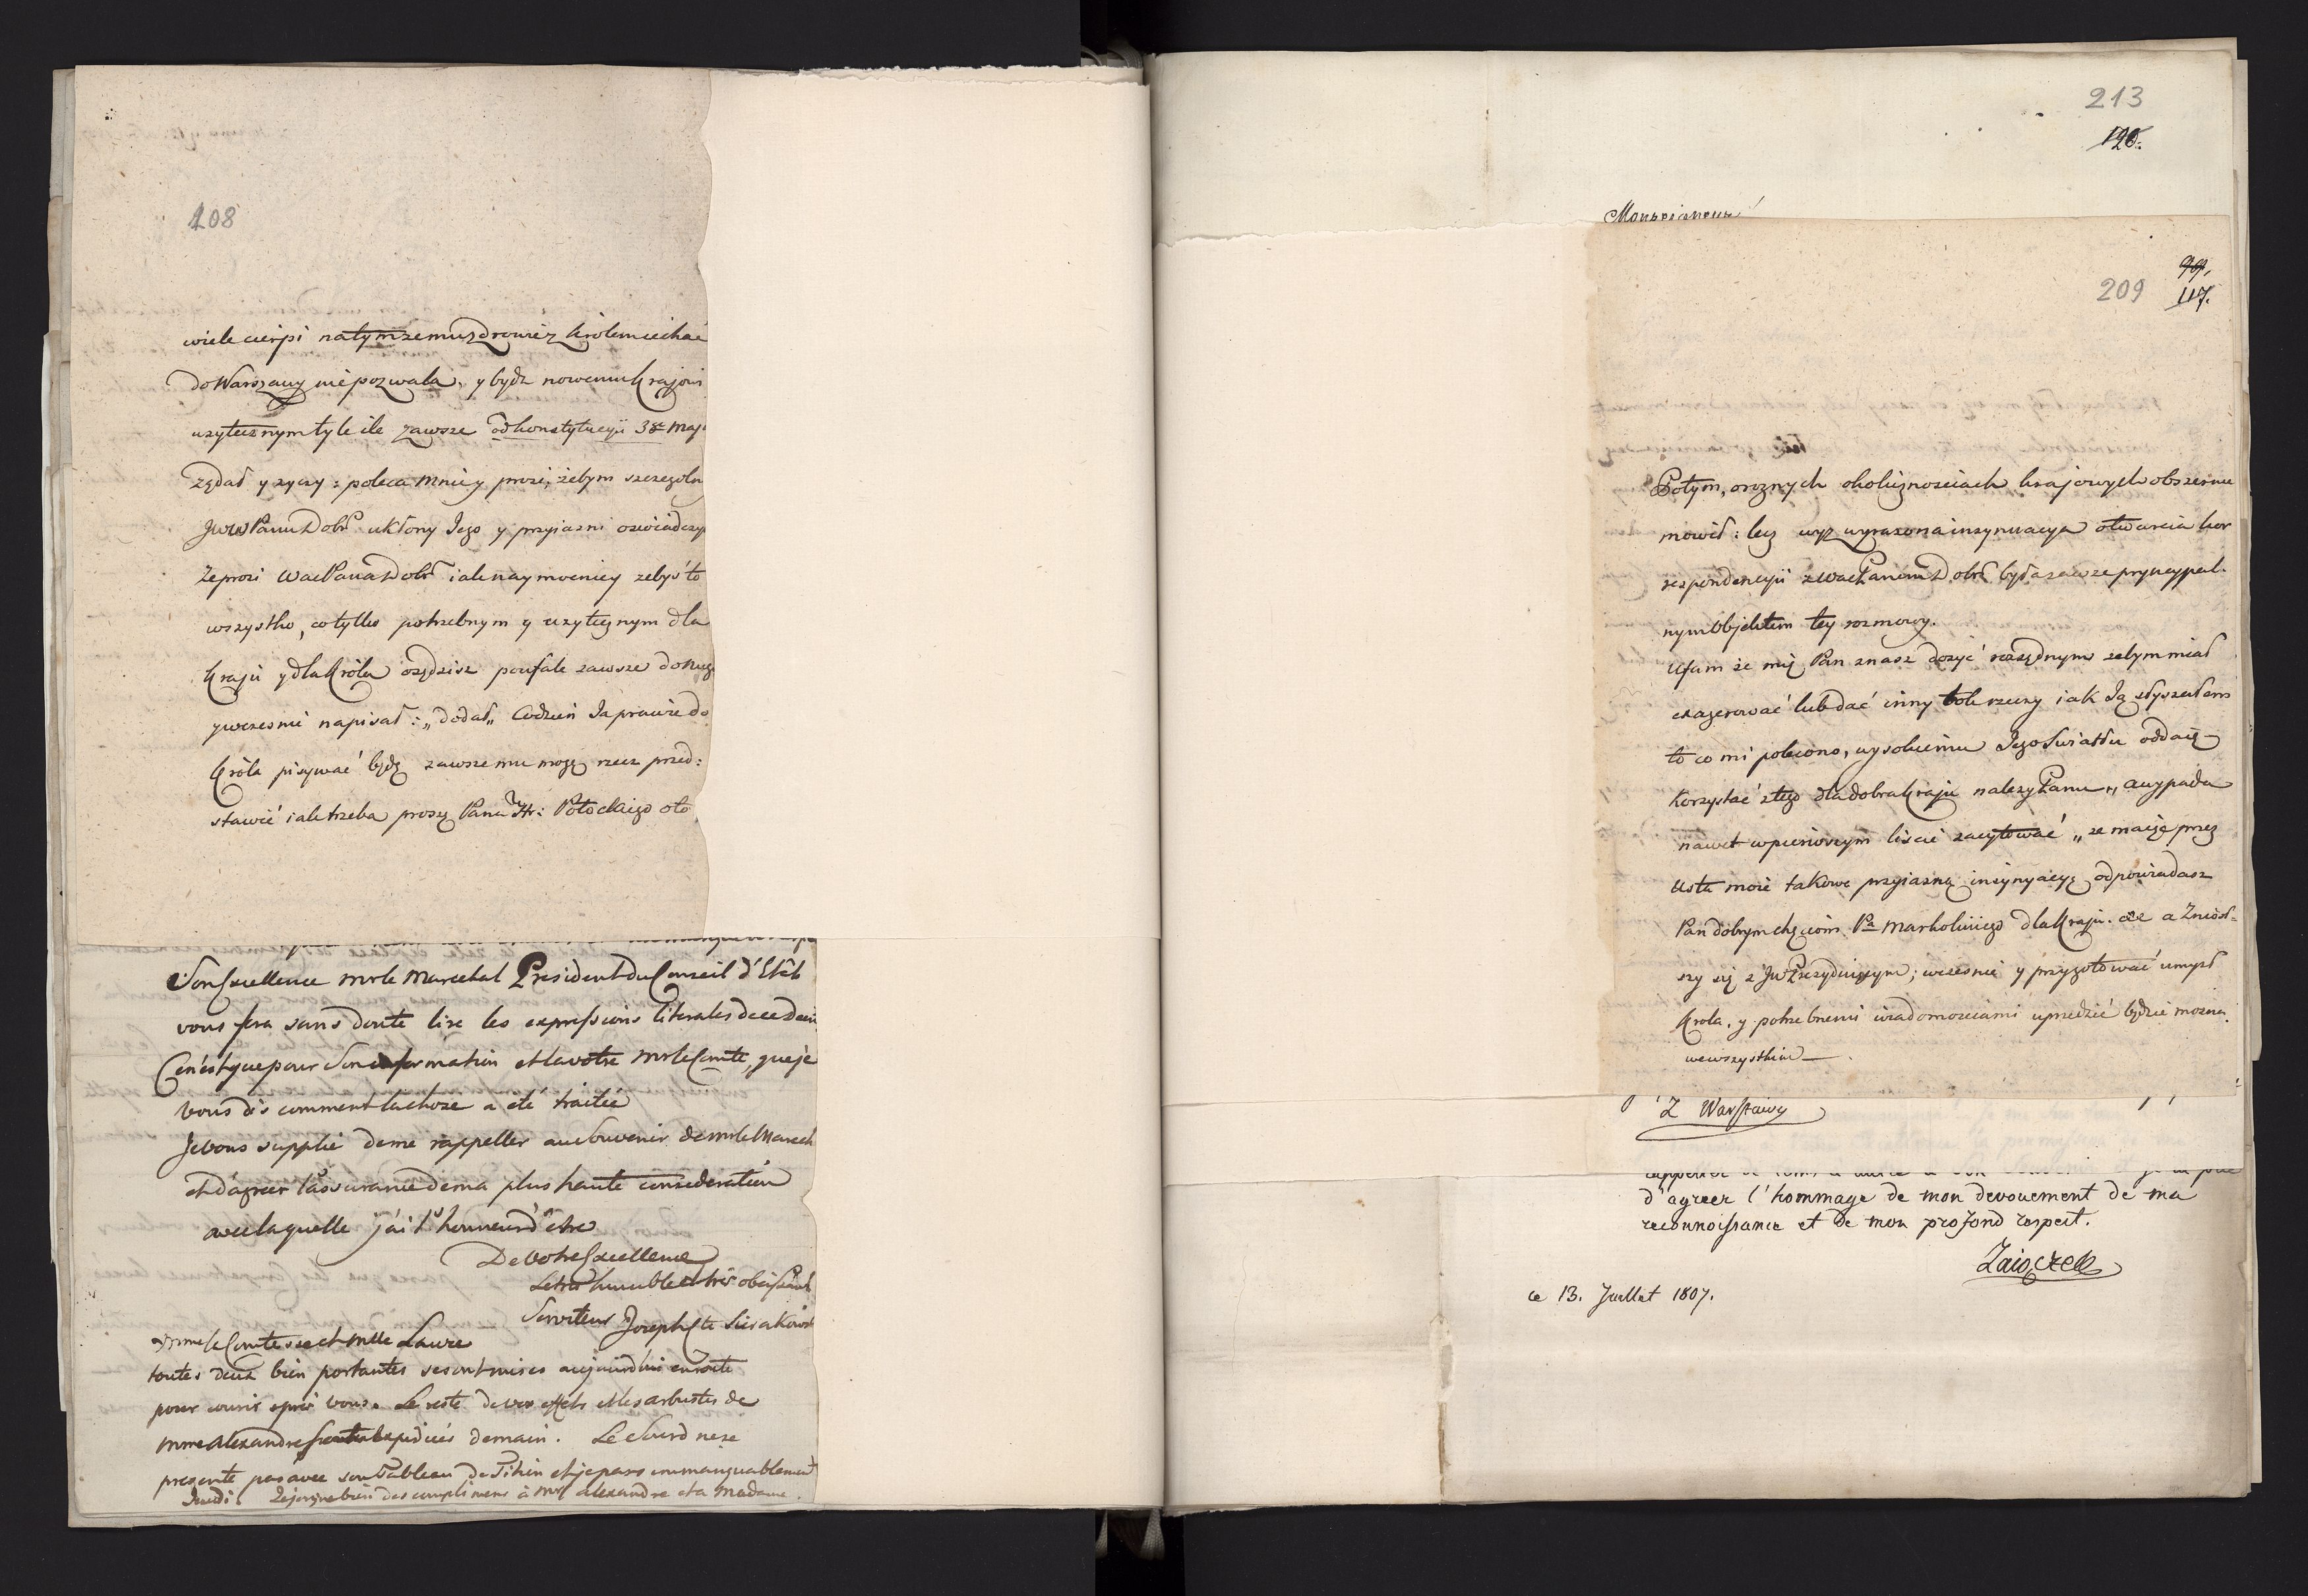 108
wiele cierpi na tym ze mu zdrowie z Królem iechać
do Warszawy nie pozwala, y bydz nowemu krajowi
uzytecznym tyle ile zawsze od konstytucyii 3ª Maja
ządał y zyczy: poleca mnie y prosi, żebym szczegoln
JWW Panu Dobr uklony Jego y przyiazni oswiadczyć
Ze prosi WacPana Dobr iak naymocniey zebyś to
wszystko, co tylko potrzebnym y uzytecznym dla
kraju y dla Króla osądzisz poufale zawsze do niego
y wczesnie napisał: „dodał„ Codzień Ja prawie do
Króla pisywać będę zawsze mu mogę rzecz przed:
stawić iak trzeba proszę Pana Hr: Potockiego oto
Son Excellence Mr le Marechal President du Conseil d'Etât
vous fera sans doute lire les expressions literales de ce
Ce n'est que pour Son information et la votre Mr le Comte, que je
vous dis comment la chose a été traitée
Je vous supplie de me rappeller au Souvenir de Mr le Marech
et d'agreer l'assurance de ma plus haute consideration
avec laquelle j'ai l'honneur d'etre
De Votre Excellence
Le tres humble et très obeissant
Serviteur Joseph Cte Sierakows
Mme la Comtesse et Mlle Laure
toutes deux bien portantes se sont mises aujourdhui en route
pour courir après vous. Le reste de vos effets et les arbustes de
Mme Alexandre seront expediées demain. Le Sourd ne se
presente pas avec son Tableau de Titien et je pars immanquablement
Jeudi. Je joigne bien des complimens à Mr Alexandre et a Madame.
213
120.
Monseigneur!
99.
209
117.
Potym, o roznych okolicznosciach krajowych obszernie
mowił: lecz wyz wyrazona insynuacya otwarcia kor
respondencyii z WacPanem Dobr była zawsze pryncypal.
nym Objektem tey rozmowy.
Ufam ze mię Pan znasz dosyć rozsądnym zebym miał
exagerować lub dać inny tok rzeczy iak Ją słyszałem
to co mi polecono, wysokiemu Jego Swiatłu oddaię
Korzystać z tego dla dobra kraju nalezy Panu„ a wypada
nawet w pierwszym liscie zacytować „ze maiąc przez
usta moie takowe przyiazną insynyacyę odpowiadasz
Pan dobrym chęciom Pª Markoliniego dla kraju. &c a Zniosł=
szy się z JW Prezyduiącym; wczesnie y przygotować umysł
Krola, y potrzebnemi wiadomosciami uprzedzić będzie mozna
we wszystkim —.
Z Warszawy
d'agreer l'hommage de mon devouement de ma
reconnoissance et de mon profond respect.
Zaionczek
ce 13. Juillet 1807.